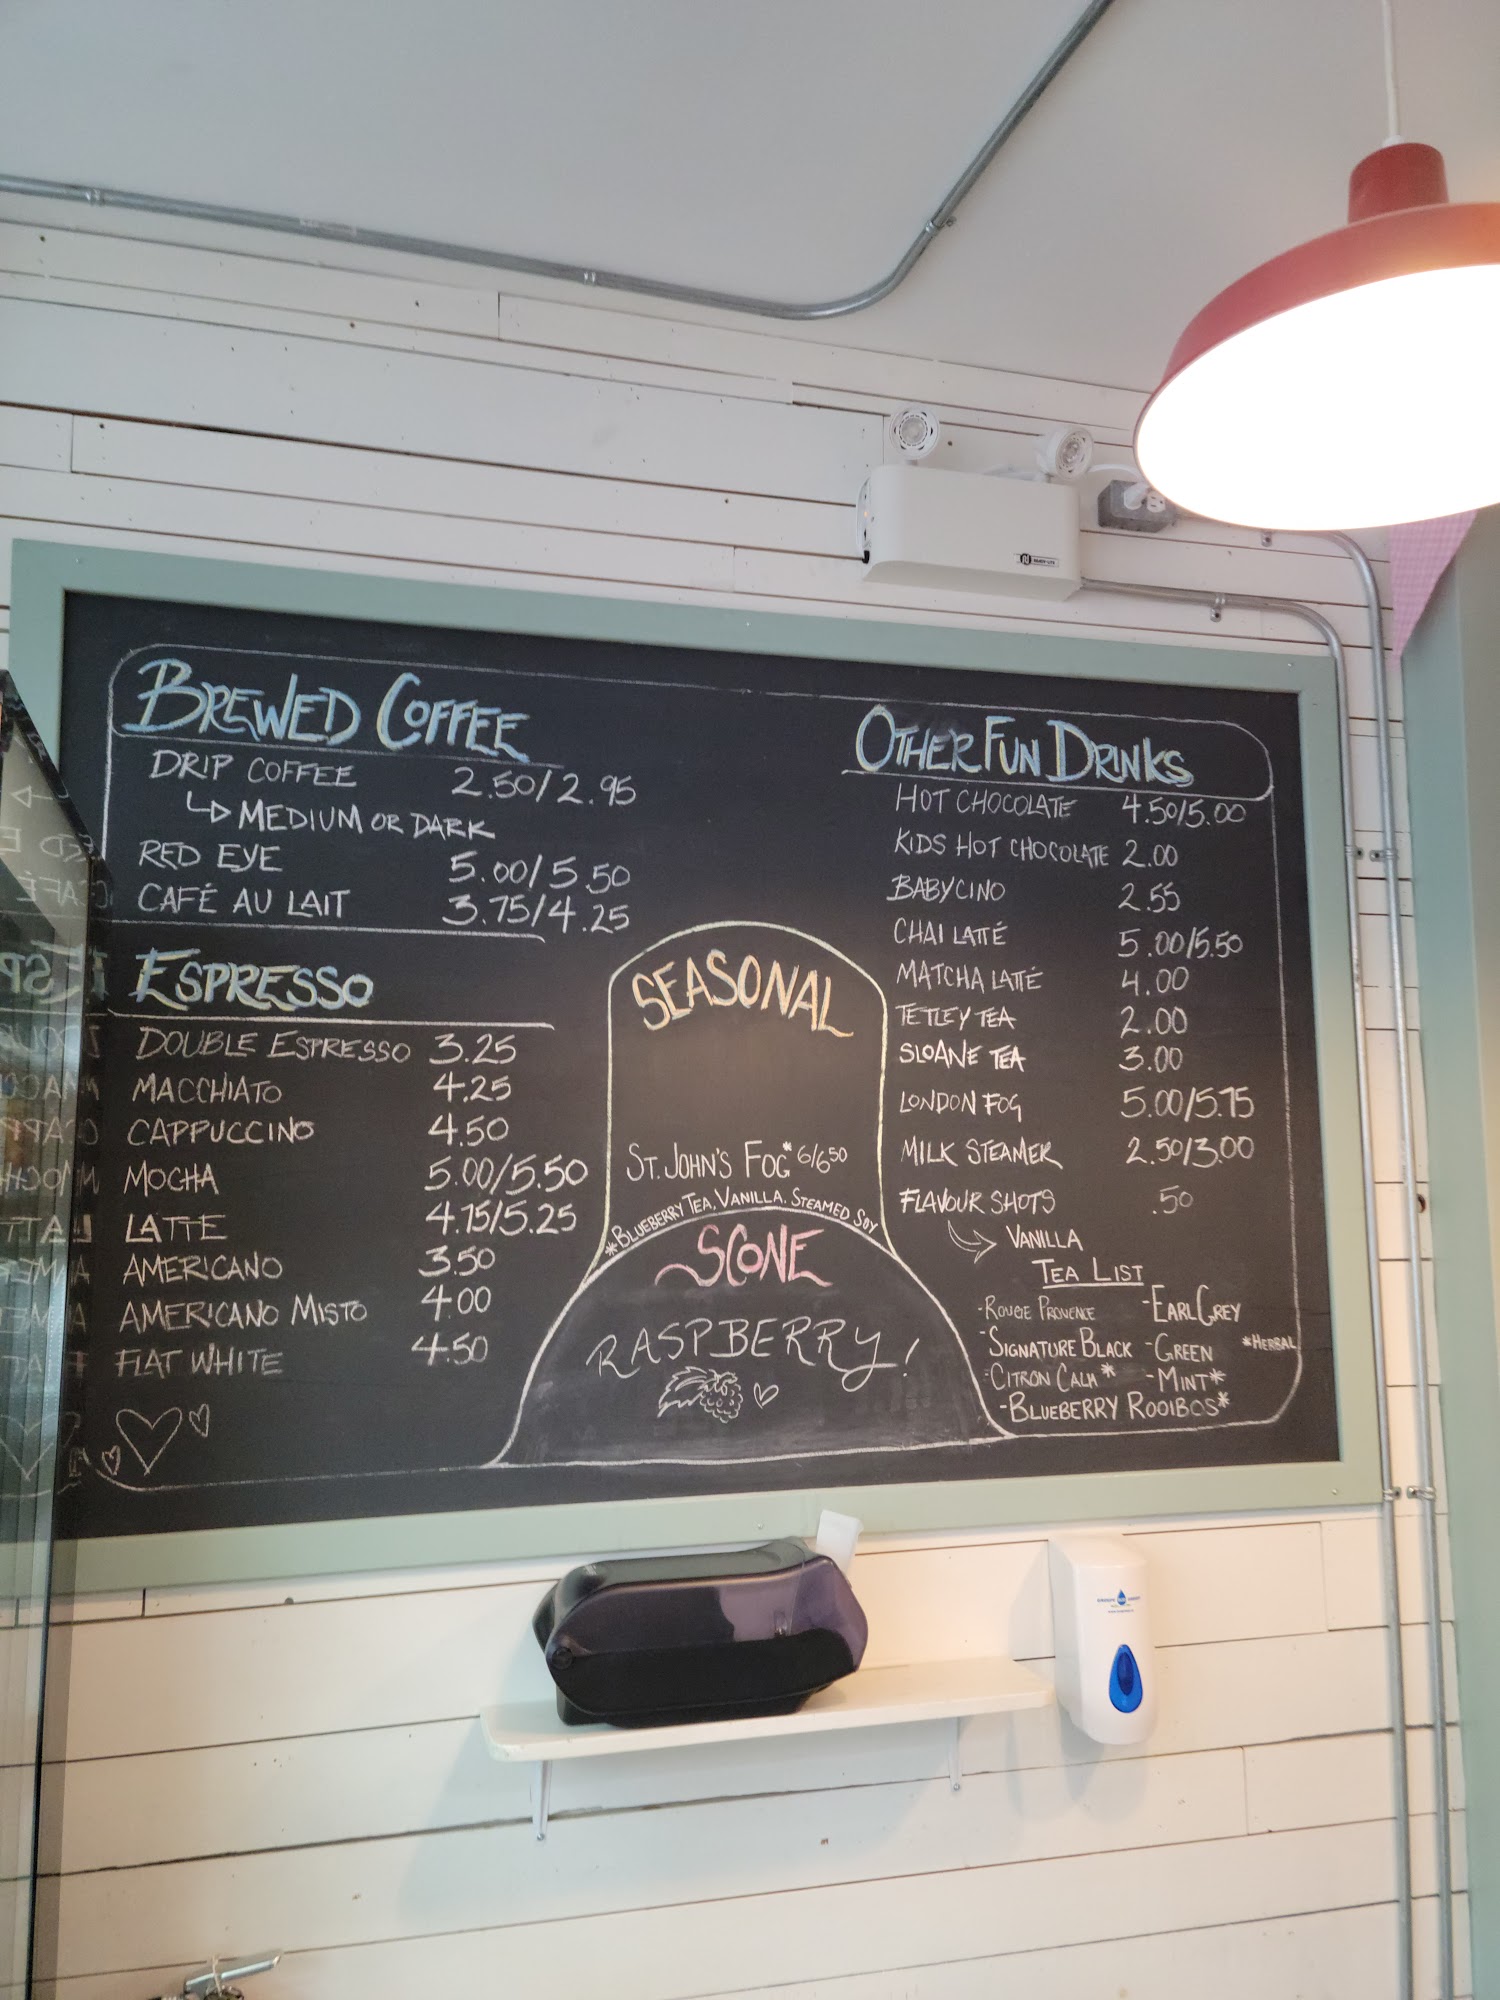 BREWED COFFEE
DRIP COFFEE 2.50/2.95
MEDIUM OR DARK
RED EYE 5.00/5.50
CAFÉ AU LAIT 3.75/4.25
ESPRESSO
DOUBLE ESPRESSO 3.25
MACCHIATO 4.25
CAPPUCCINO 4.50
MOCHA 5.00/5.50
LATTE 4.75/5.25
AMERICANO 3.50
AMERICANO MISTO 4.00
FLAT WHITE 4.50
SEASONAL
ST. JOHN'S FOG* 6/6.50
*BLUEBERRY TEA, VANILLA, STEAMED SOY
SCONE
RASPBERRY!
OTHER FUN DRINKS
HOT CHOCOLATE 4.50/5.00
KIDS HOT CHOCOLATE 2.00
BABYCINO 2.55
CHAI LATTÉ 5.00/5.50
MATCHA LATTÉ 4.00
TETLEY TEA 2.00
SLOANE TEA 3.00
LONDON FOG 5.00/5.75
MILK STEAMER 2.50/3.00
FLAVOUR SHOTS .50
VANILLA
TEA LIST
-ROUGE PROVENCE -EARL GREY
-SIGNATURE BLACK -GREEN *HERBAL
-CITRON CALM* -MINT*
-BLUEBERRY ROOIBOS*